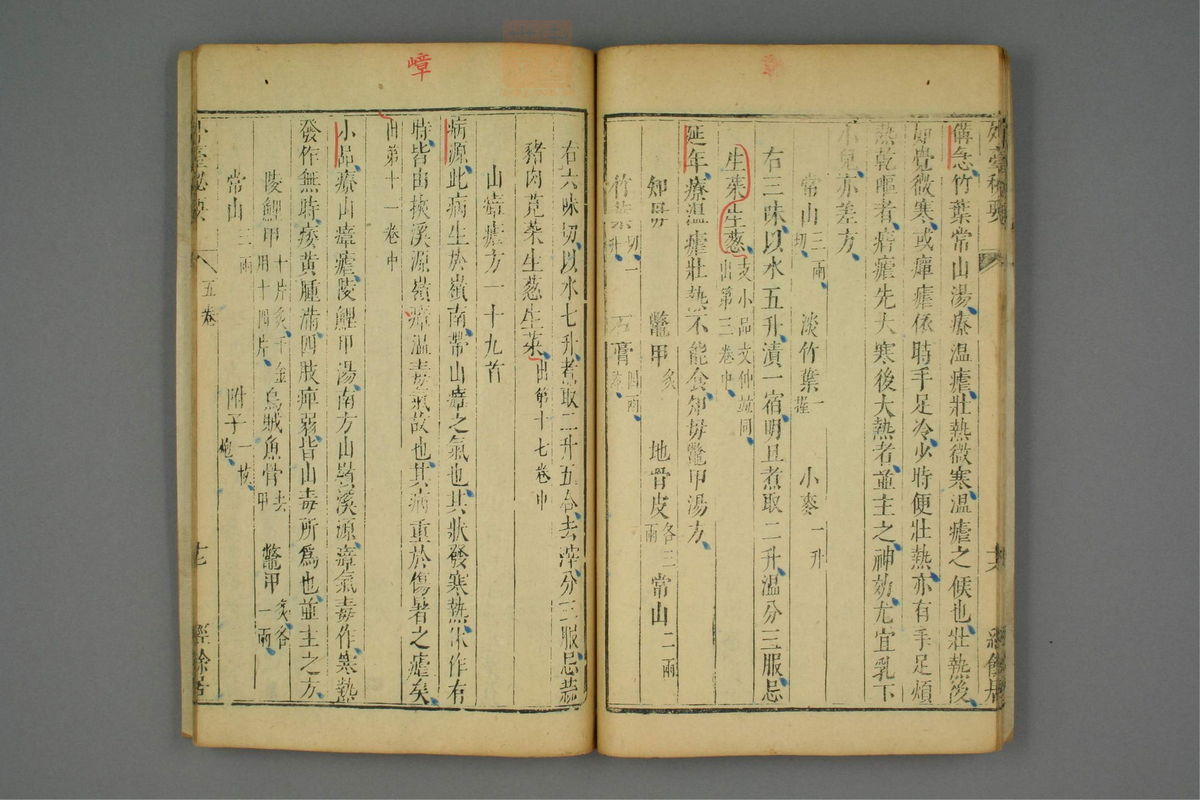 備急竹葉常山湯療溫瘧壯熱微寒溫瘧之候也壯熱後
如覺微寒或癉瘧依時手足冷少時便壯熱亦有手足煩
熱乾嘔者瘄瘧先大寒後大熱者並主之神効尤宜乳下
小兒亦差方
常山三兩切 淡竹葉一握 小麥一升
右三味以水五升漬一宿明旦煮取二升溫分三服忌
生菜生葱支小品文仲並同出第三卷中
延年療溫瘧壯熱不能食知母鼈甲湯方
知母 鼈甲炙 地骨皮各三兩 常山二兩
竹葉切一升 石膏四兩
外臺秘要
十六
經餘居
嶂
右六味切以水七升煮取二升五合去滓分三服忌蒜
豬肉莧菜生葱生菜出第十七卷中
山瘴瘧方一十九首
病源此病生於嶺南帶山瘴之氣也其狀發寒熱休作有
時皆由挾溪源嶺瘴溫毒氣故也其病重於傷暑之瘧矣
出第十一卷中
小品療山瘴瘧陵鯉甲湯南方山嶺溪源瘴氣毒作寒熱
發作無時痿黃腫滿四肢痺弱皆山毒所爲也並主之方
陵鯉甲十片炙千金用十四片 烏賊魚骨去甲 鼈甲炙各一兩
常山三兩 附子一枚炮
外臺秘要
五卷
十七
經餘居